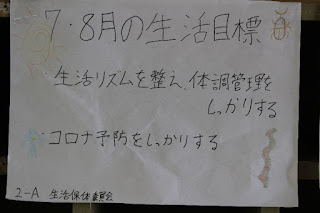 7・8月の生活目標
生活リズムを整え、体調管理を
しっかりする
・コロナ予防をしっかりする
2-A 生活保体委員会